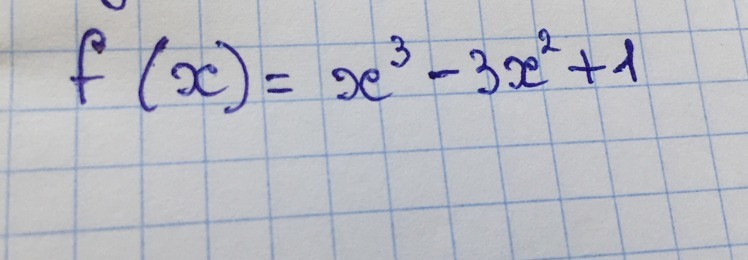 f(x) = x³ - 3x² + 1